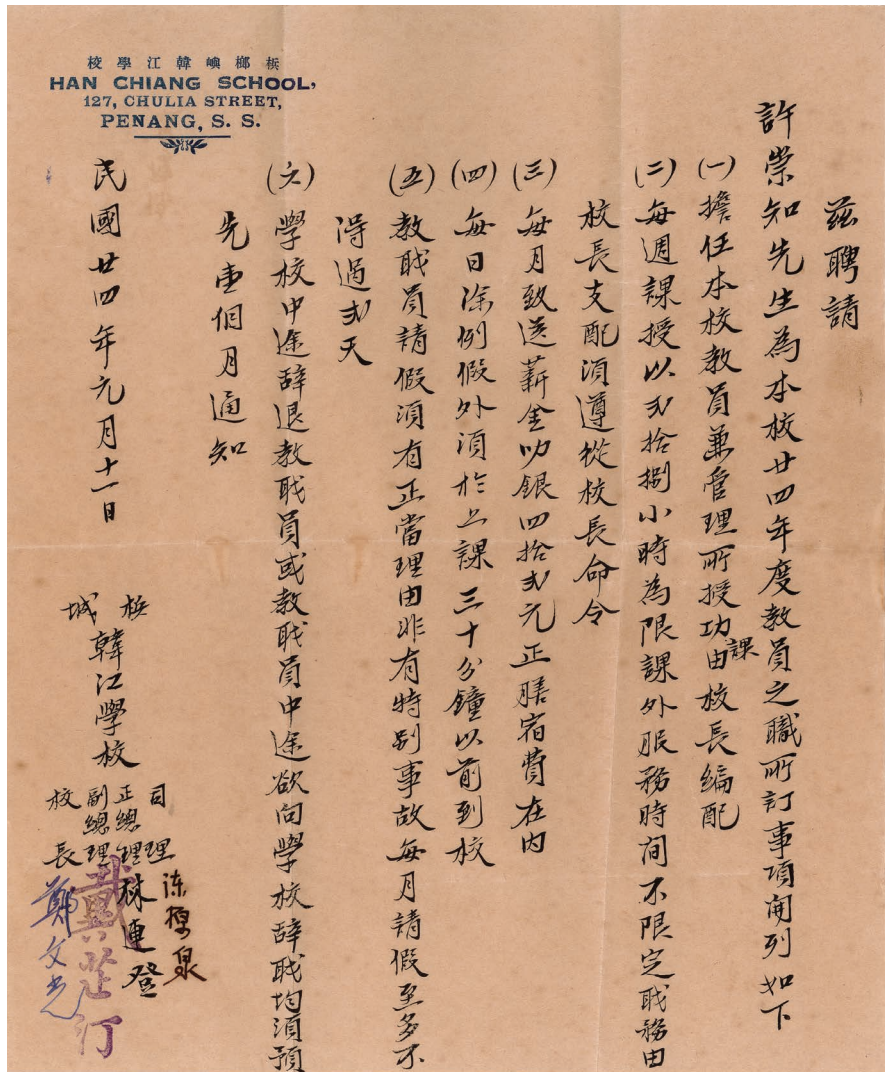 梹榔嶼韓江學校
HAN CHIANG SCHOOL,
127, CHULIA STREET,
PENANG, S. S.
茲聘請
許崇知先生為本校廿四年度教員之職所訂事項開列如下
(一)擔任本校教員兼管理所授功課由校長編配
(二)每週課授以弍拾捌小時為限課外服務時间不限定職務由
校長支配須遵從校長命令
(三)每月致送薪金叻銀四拾弍元正膳宿費在内
(四)每日除例假外須於上課三十分鐘以前到校
(五)教職員請假須有正當理由非有特别事故每月請假至多不
得過弍天
(六)學校中途辞退教職員或教職員中途欲向學校辞職均須預
先壹個月通知
民國廿四年元月十一日
梹城
韓江學校
司理
正總理 林連登
副總理 戴
校長 鄭文光
訂